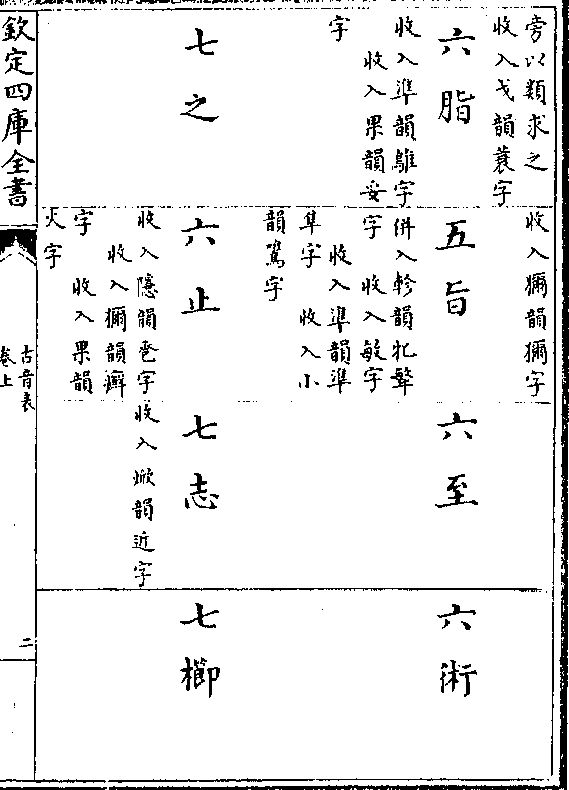 旁以類求之
收入戈韻蓑字
六脂
收入準韻鵻字
收入果韻妥
字
七之
收入獮韻獮字
五旨
併入軫韻牝
字 收入敏字
收入準韻準
隼字 收入小
韻鷕字
六止
收入隱韻巹字
收入獮韻癬
字 收入果韻
火字
六至
七志
收入焮韻近字
六術
七櫛
欽定四庫全書
古音表
卷上
二